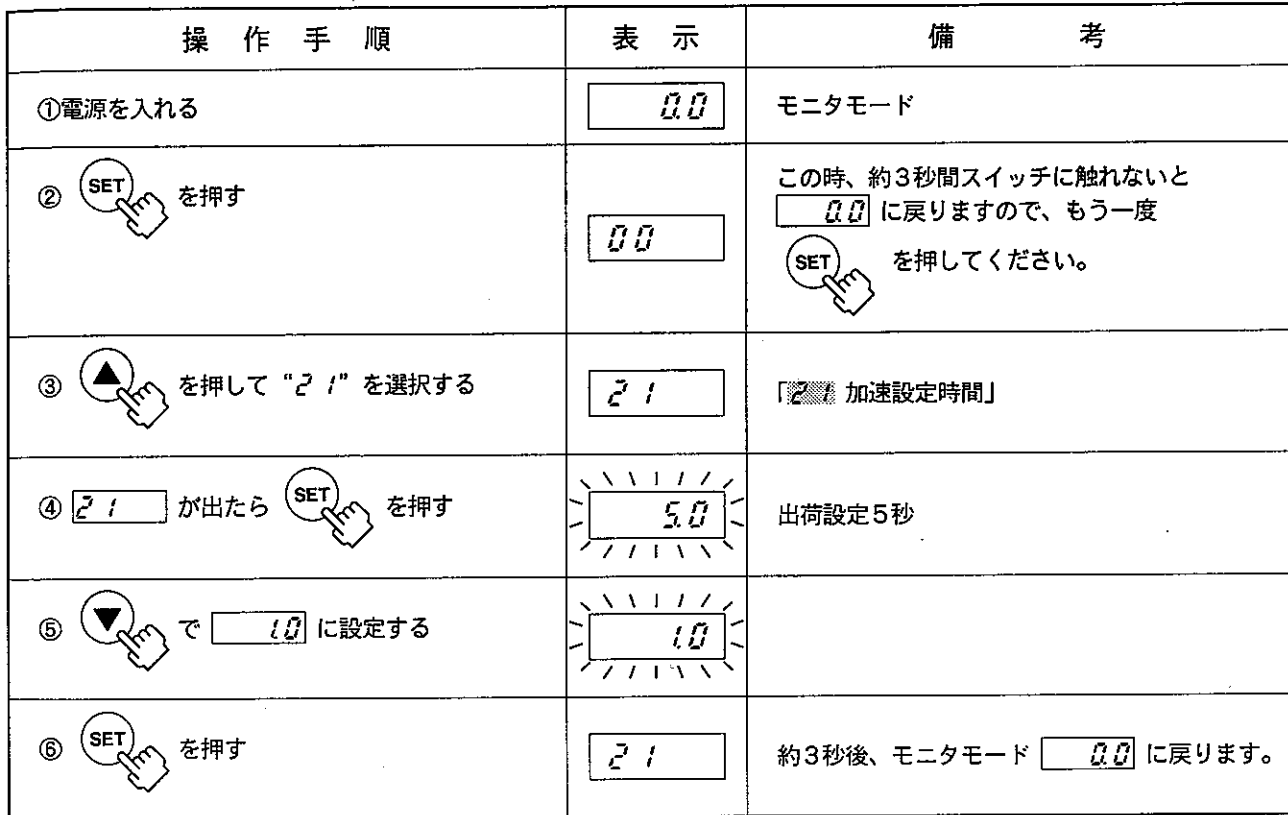 操作手順 表示 備考
①電源を入れる 0.0 モニタモード
② SET を押す 00 この時、約3秒間スイッチに触れないと
0.0 に戻りますので、もう一度
SET を押してください。
③ ▲ を押して “21” を選択する 21 「21 加速設定時間」
④ 21 が出たら SET を押す 5.0 出荷設定5秒
⑤ ▼ で 1.0 に設定する 1.0
⑥ SET を押す 21 約3秒後、モニタモード 0.0 に戻ります。